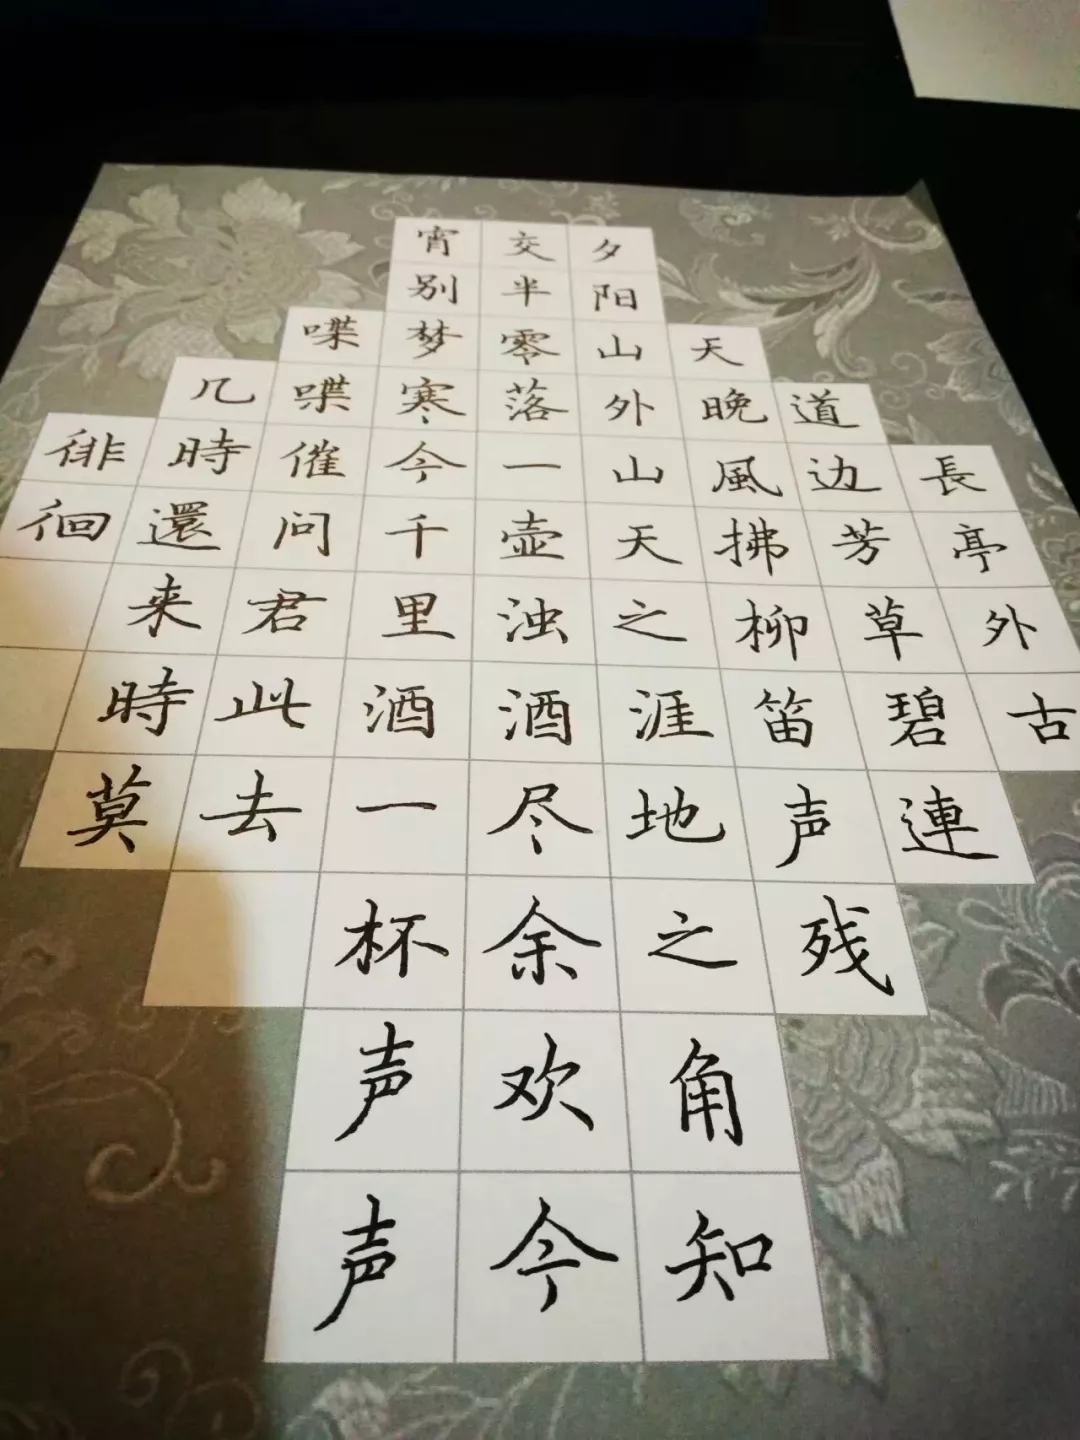 長亭外古
道边芳草碧連
天晚風拂柳笛声残
夕阳山外山天之涯地之角知
交半零落一壶浊酒尽余欢今
宵别梦寒今千里酒一杯声声
喋喋催问君此去
几時還来時莫
徘徊